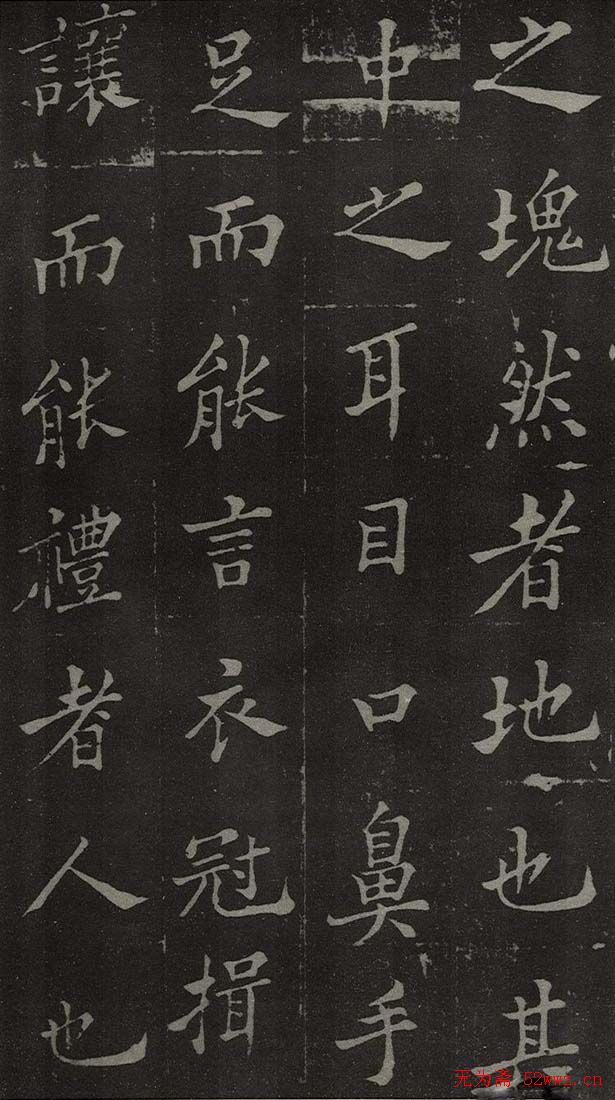 之塊然者地也其
中之耳目口鼻手
足而能言衣冠揖
讓而能禮者人也
无为斋 52wwz.cn